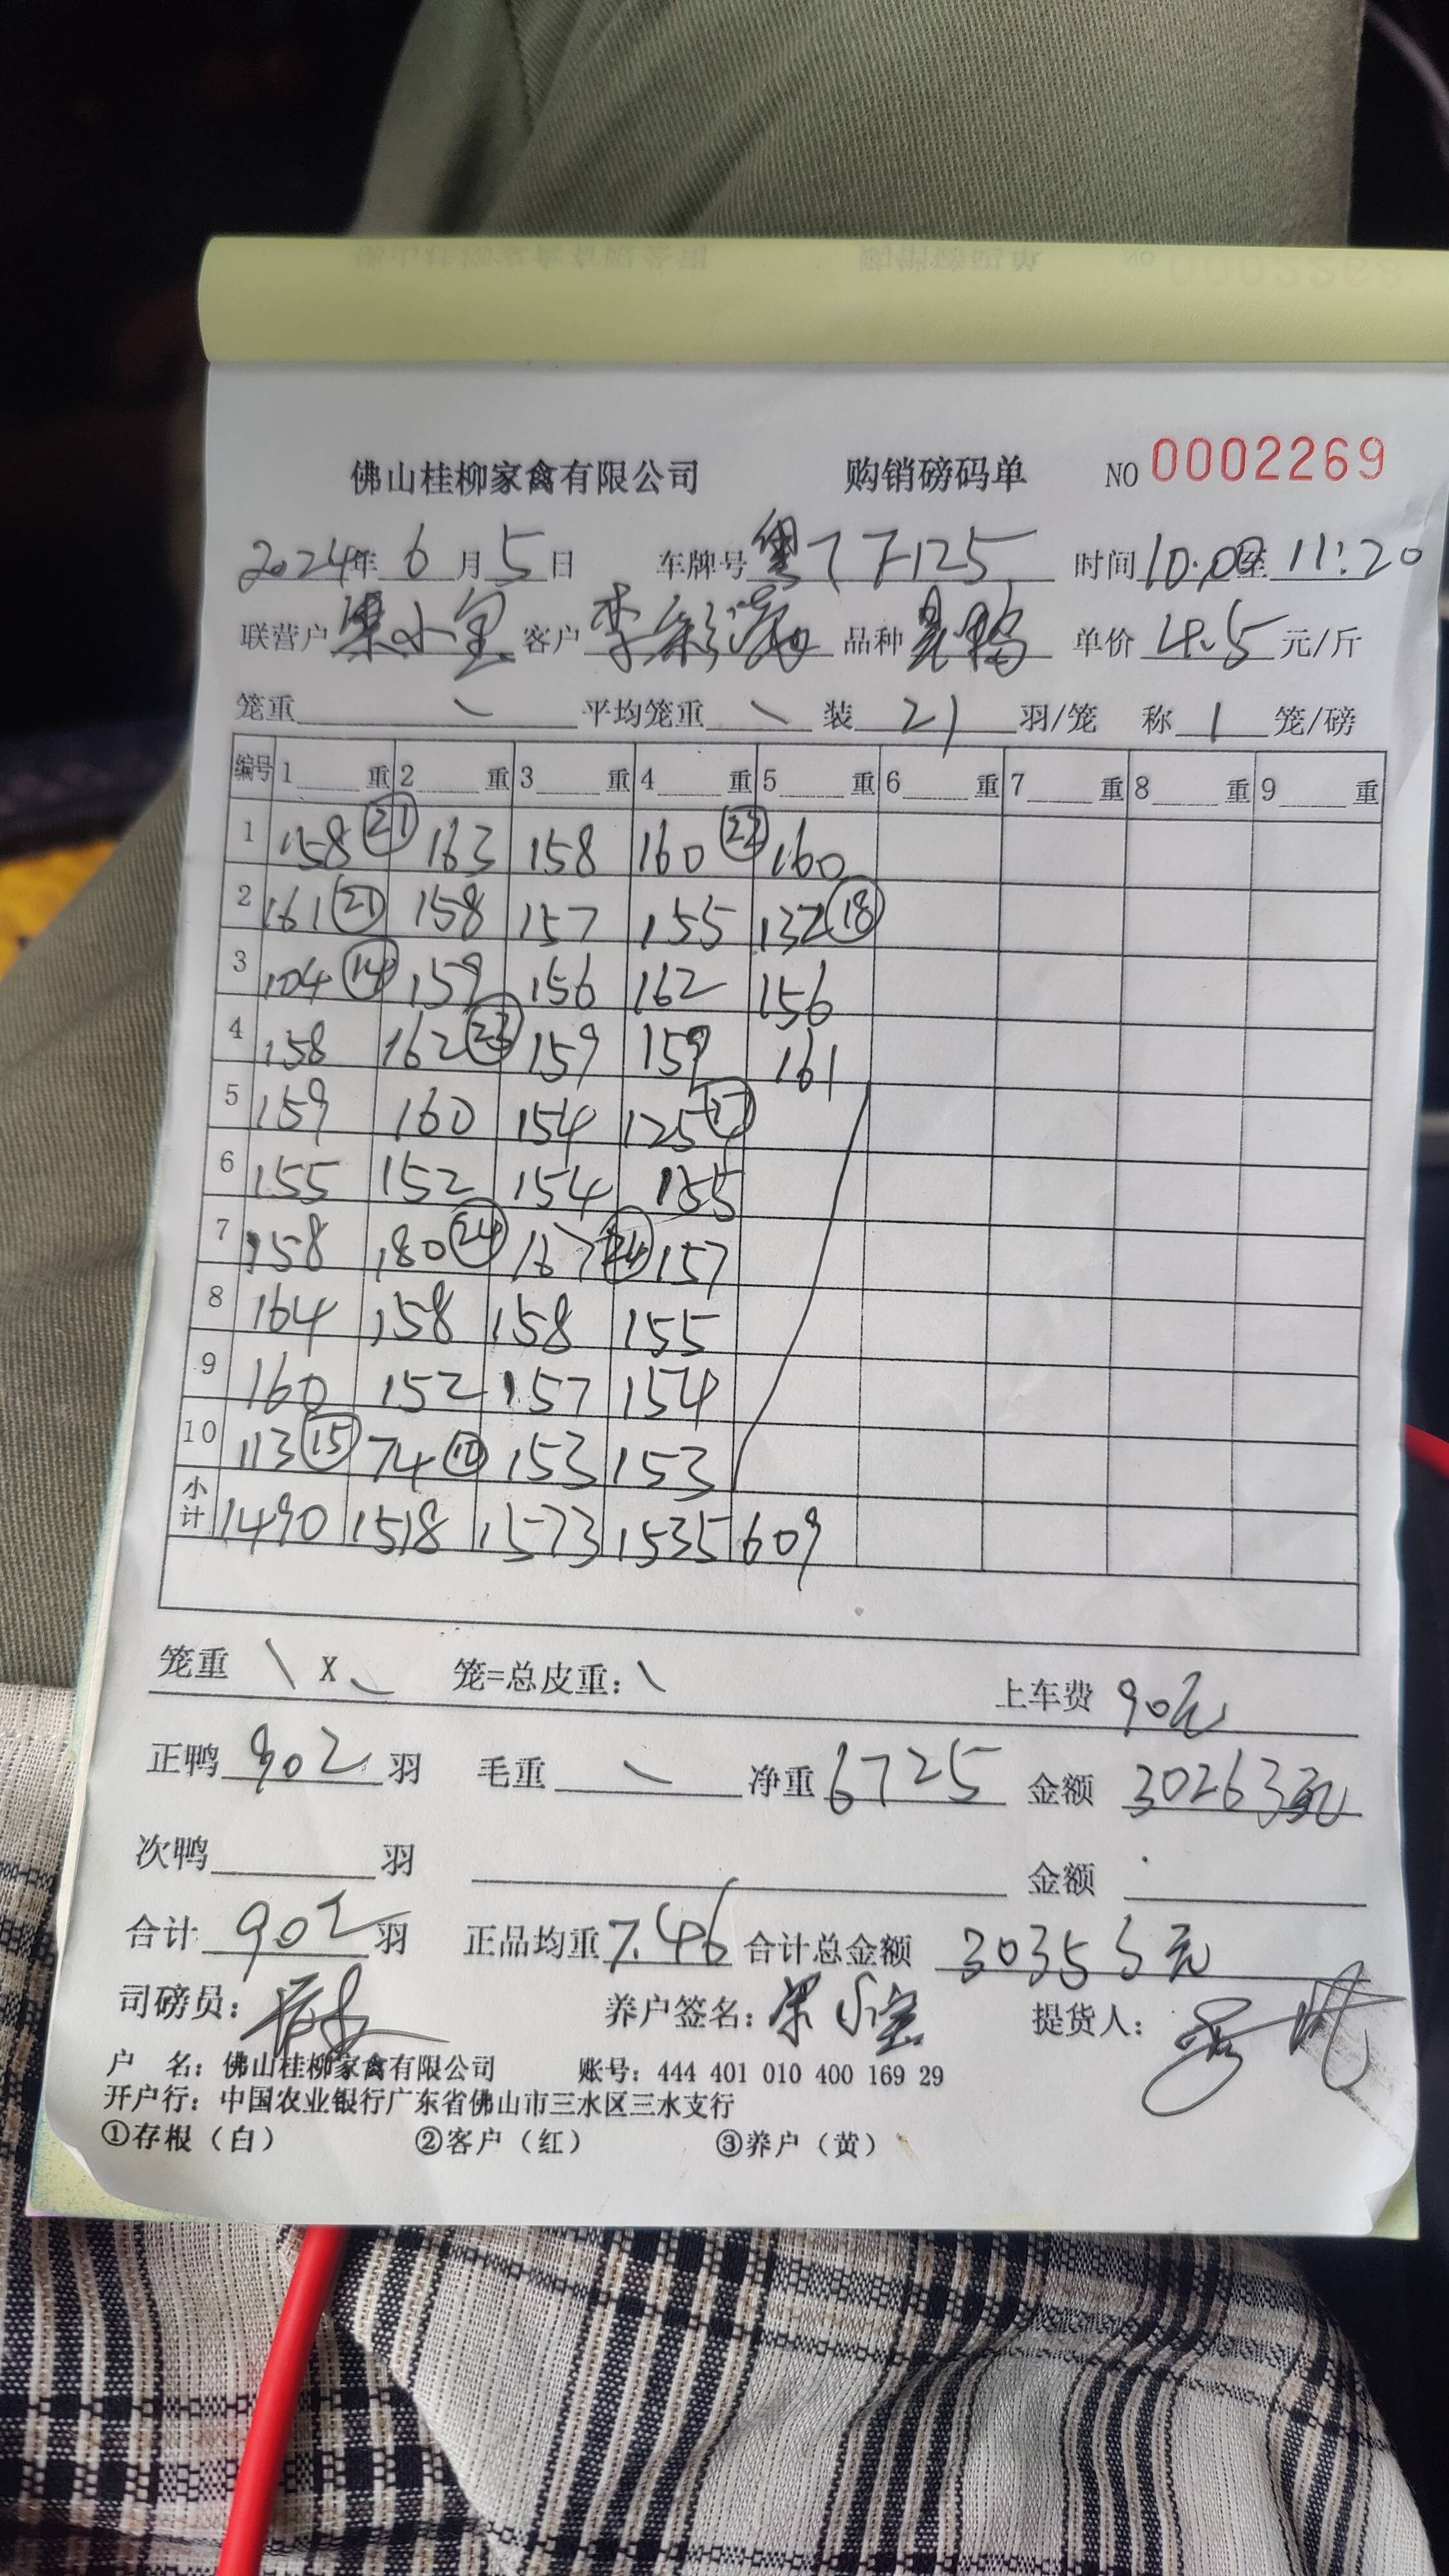 佛山桂柳家禽有限公司 购销磅码单 NO 0002269
2024年 6 月 5 日 车牌号 粤 F125 时间 10:00 至 11:20
联营户 梁小 客户 李彩 品种 鸭 单价 4.5 元/斤
笼重 \ 平均笼重 \ 装 21 羽/笼 称 1 笼/磅
编号 1 重 2 重 3 重 4 重 5 重 6 重 7 重 8 重 9 重
1 158 ㉑ 163 158 160 ㉒ 160
2 161 ㉑ 158 157 155 132 ⑱
3 104 ⑭ 159 156 162 156
4 158 162 ㉓ 159 159 161
5 159 160 154 125 ⑰
6 155 152 154 155
7 158 180 ㉔ 167 157
8 164 158 158 155
9 160 152 157 154
10 113 ⑮ 74 ⑩ 153 153
小计 1490 1518 1573 1535 609
笼重 \ X \ 笼=总皮重: \ 上车费 90元
正鸭 902 羽 毛重 \ 净重 6725 金额 30263元
次鸭 羽 金额
合计 902 羽 正品均重 7.46 合计总金额 30353元
司磅员: 养户签名: 梁小 提货人:
户 名: 佛山桂柳家禽有限公司 账号: 444 401 010 400 169 29
开户行: 中国农业银行广东省佛山市三水区三水支行
①存根（白） ②客户（红） ③养户（黄）